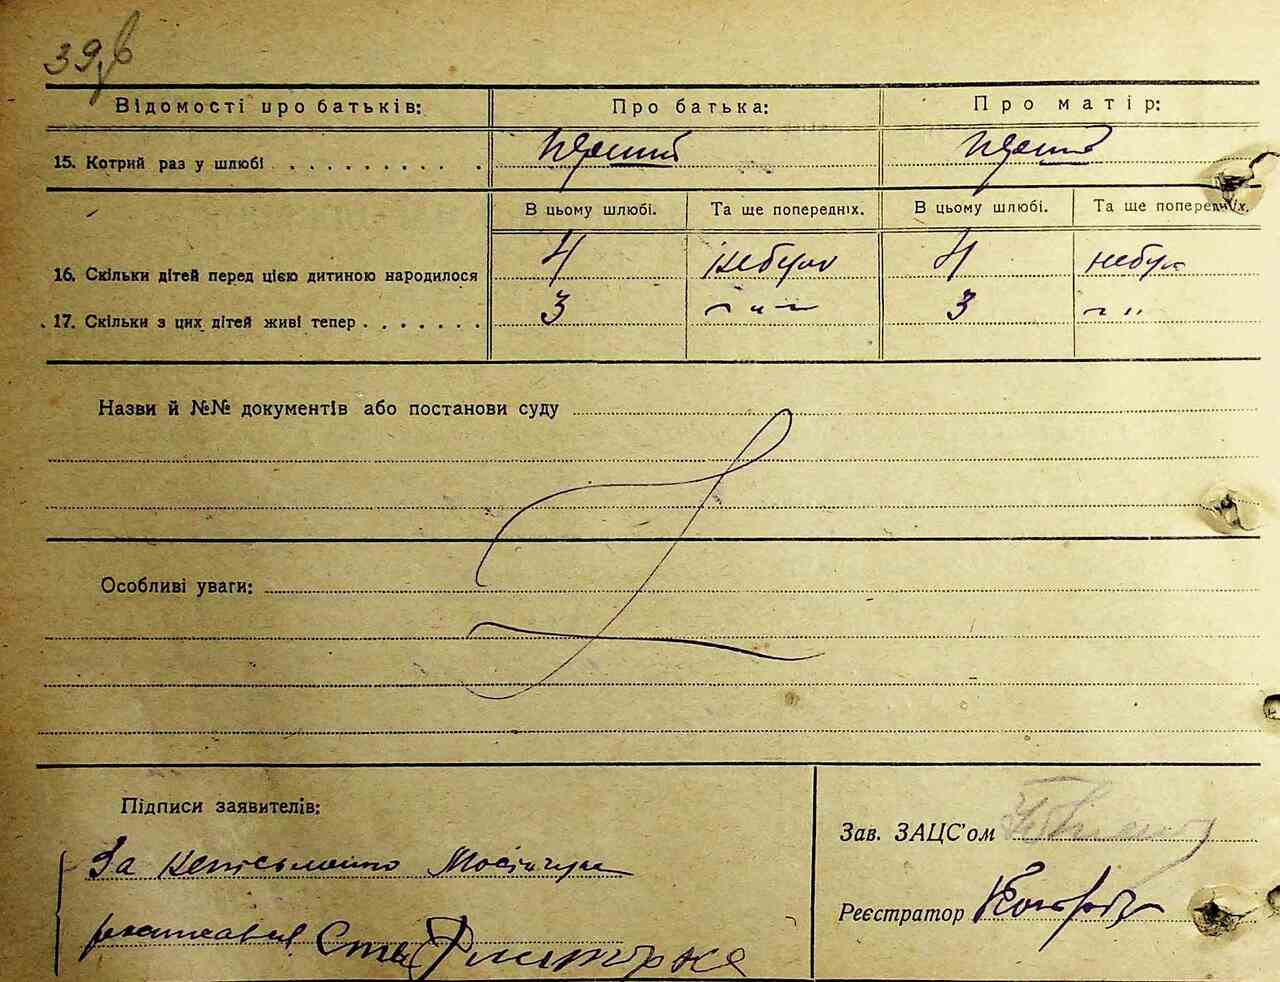 39
Відомості про батьків: Про батька: Про матір:
15. Котрий раз у шлюбі . . . . . . . . . . перший перший
В цьому шлюбі. Та ще попередніх. В цьому шлюбі. Та ще попередніх.
16. Скільки дітей перед цією дитиною народилося 4 небуло 4 небул
17. Скільки з цих дітей живі тепер . . . . . . . 3 – " – 3 – "
Назви й №№ документів або постанови суду
Особливі уваги:
Підписи заявителів:
Зав. ЗАЦС'ом
За неписьмено
Реєстратор